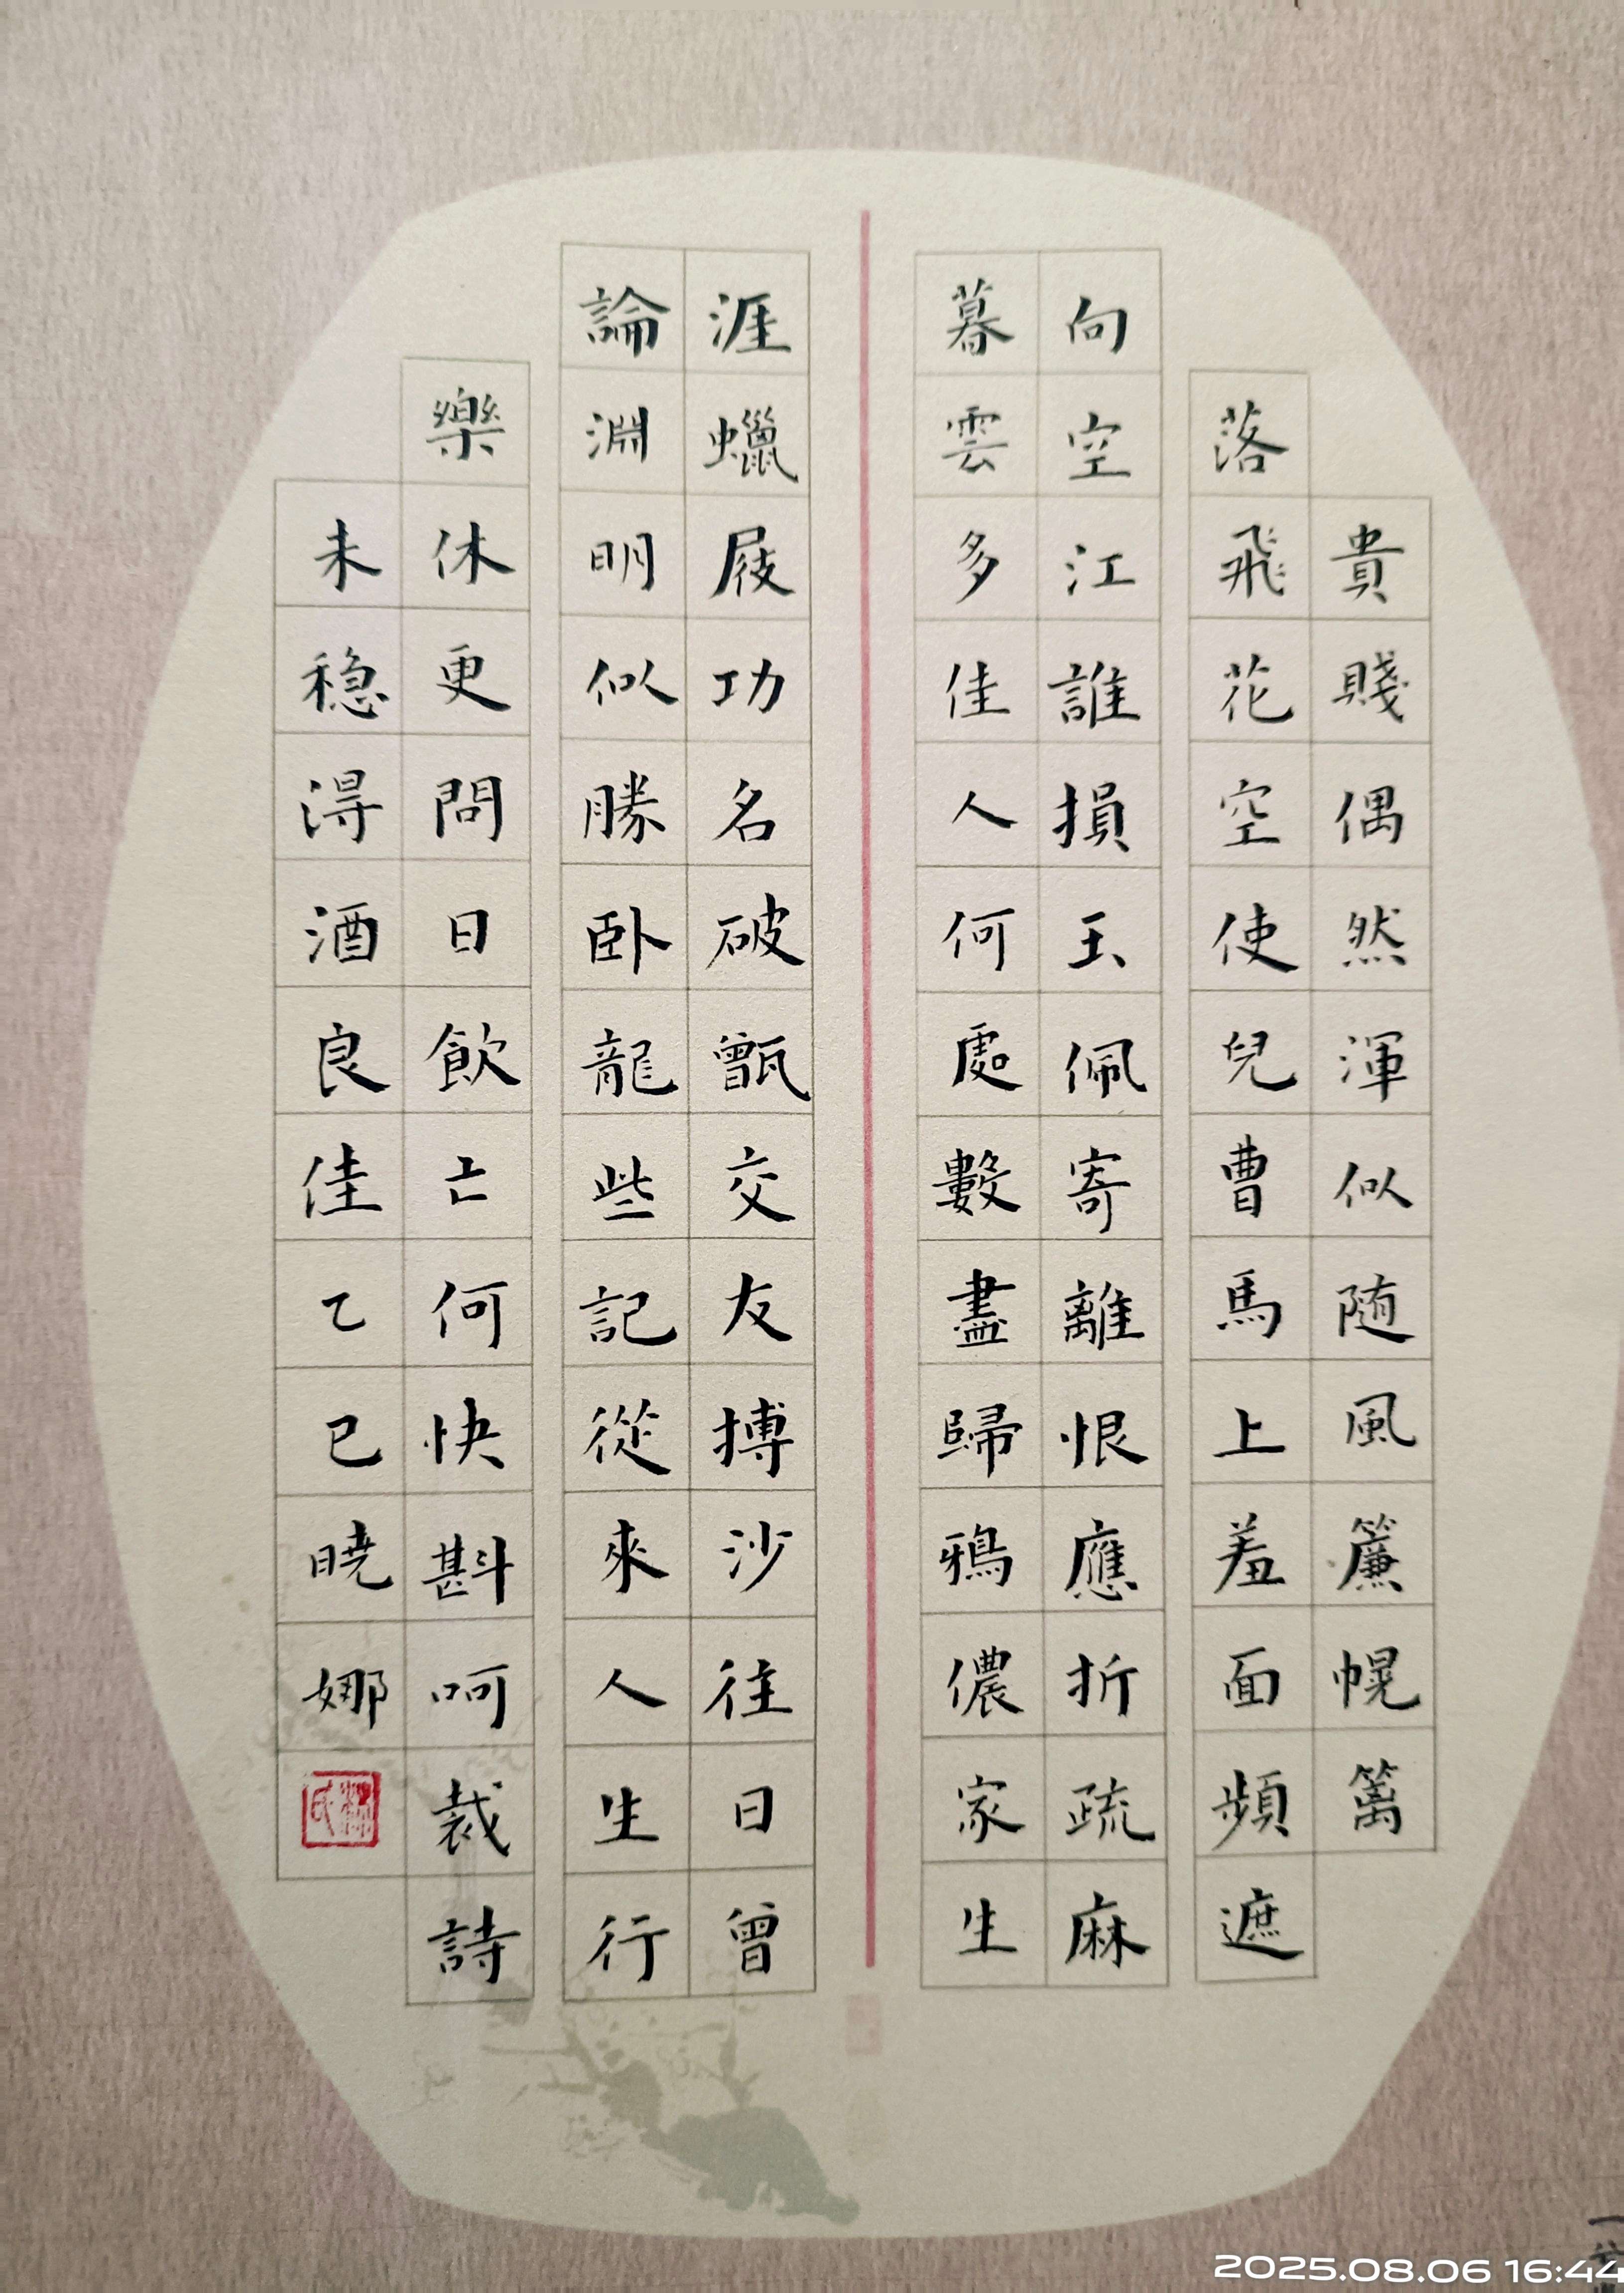 貴賤偶然渾似随風簾幌篱
落飛花空使兒曹馬上羞面頻遮
向空江誰損玉佩寄離恨應折疏麻
暮雲多佳人何處數盡歸鴉儂家生
涯蠟屐功名破甑交友搏沙往日曾
論淵明似勝卧龍些記從來人生行
樂休更問日飲亡何快斟呵裁詩
未穏得酒良佳乙巳曉娜
2025.08.06 16:44